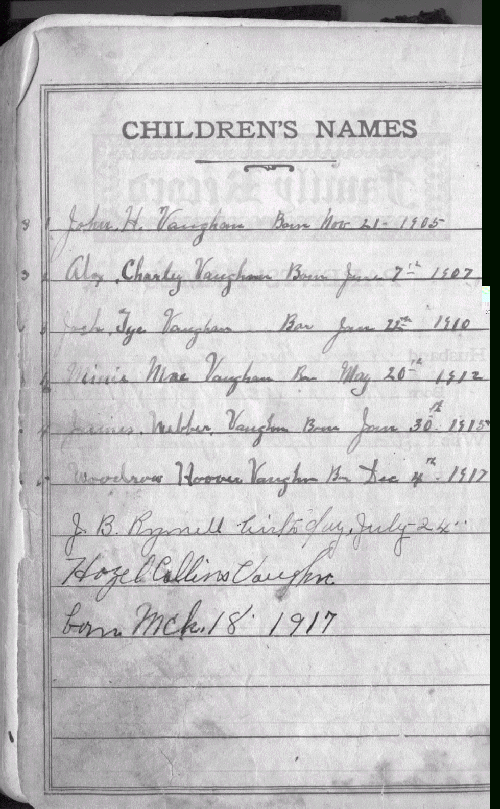 CHILDREN'S NAMES
John. H. Vaughan Born Nov. 21 - 1905
Alex. Charley Vaughan Born June 7th 1907
Tye Vaughan Bor Jan 1910
Minie Mae Vaughan Bon May 20th 1912
James. Webber. Vaughn Born Jan 30th 1915
Woodrow Hoover Vaughn Bn Dec 4th 1917
J. B. July 24
Hazel Collins Vaughn
born Mch. 18 1917